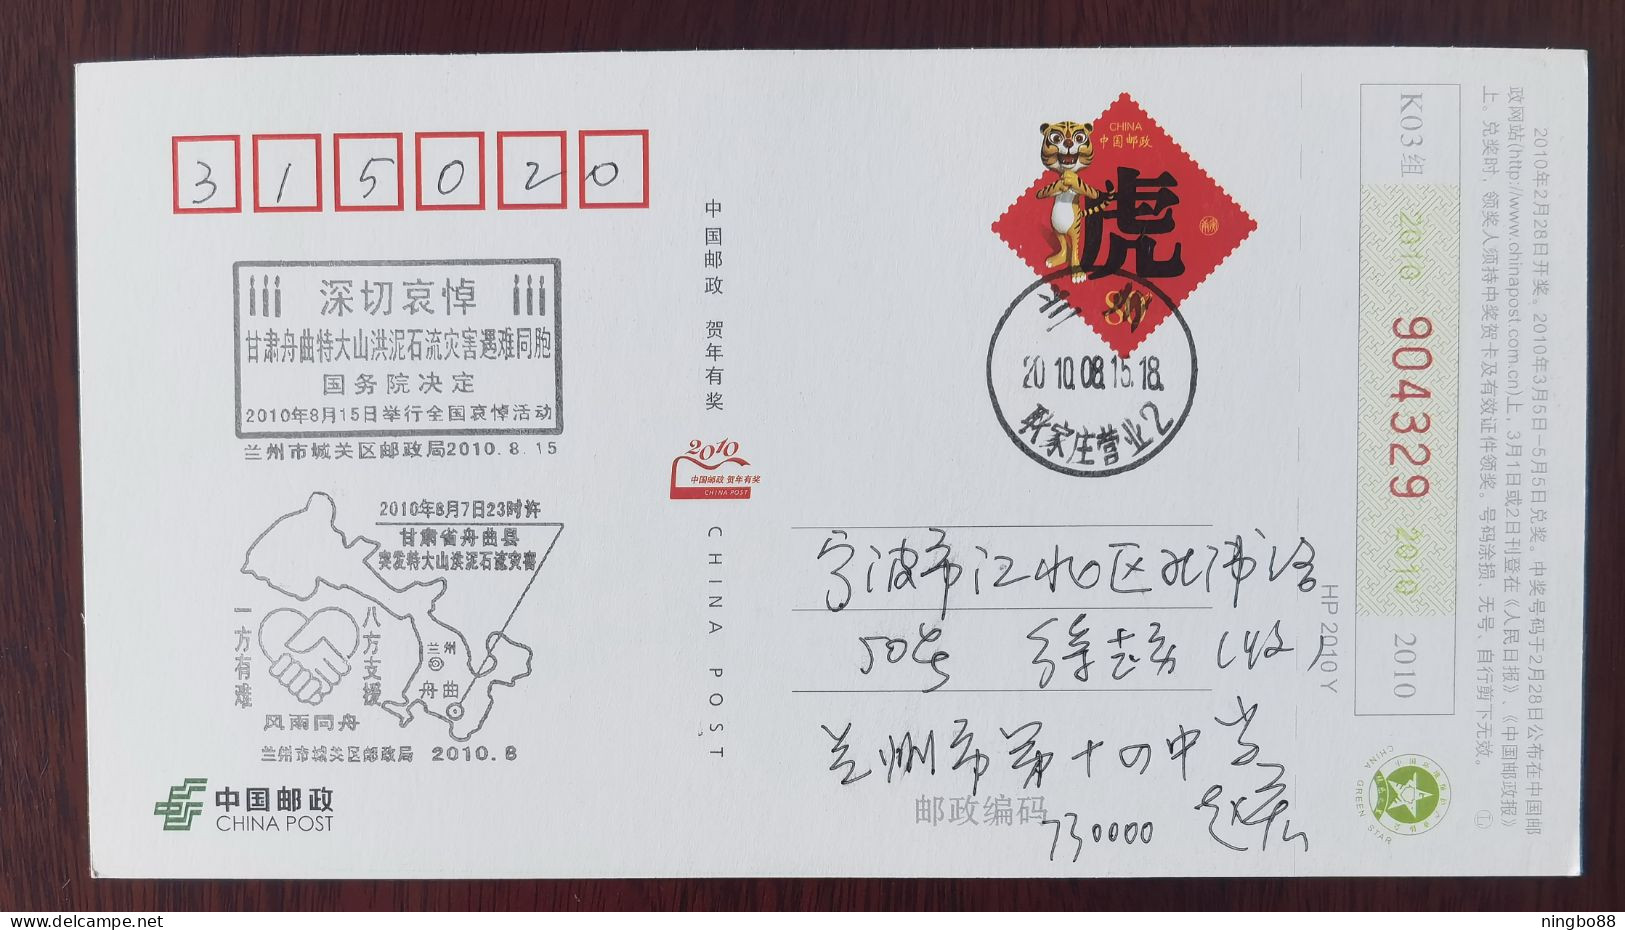 315020
深切哀悼
甘肃舟曲特大山洪泥石流灾害遇难同胞
国务院决定
2010年8月15日举行全国哀悼活动
兰州市城关区邮政局2010.8.15
2010年8月7日23时许
甘肃省舟曲县
突发特大山洪泥石流灾害
一方有难
八方支援
兰州
舟曲
风雨同舟
兰州市城关区邮政局 2010.8
中国邮政
CHINA POST
中国邮政 贺年有奖
2010
中国邮政 贺年有奖
CHINA POST
CHINA POST
CHINA
中国邮政
虎
80
兰州
2010.08.15.18.
耿家庄营业2
宁波市江北区
50号 (收)
兰州市第十四中学
邮政编码 730000
HP2010Y
K03组
2010 904329 2010
2010
2010年2月28日开奖。2010年3月5日—5月5日兑奖。中奖号码于2月28日公布在中国邮
政网站(http://www.chinapost.com.cn)上，3月1日或2日刊登在《人民日报》、《中国邮政报》
上。兑奖时，领奖人须持中奖贺卡及有效证件领奖。号码涂损、无号、自行剪下无效。
CHINA GREEN STAR
ningbo88